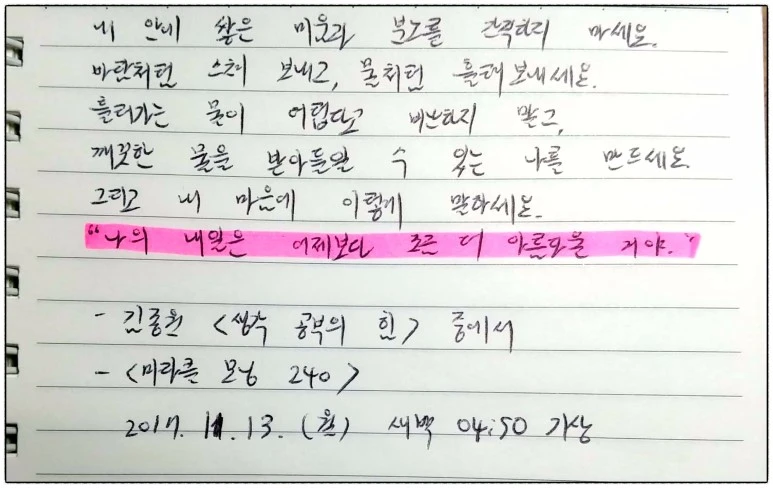 내 안에 쌓은 미움과 분노를 간직하지 마세요.
바람처럼 스쳐 보내고, 물처럼 흘려보내세요.
흘러가는 물이 어렵다고 비난하지 말고,
깨끗한 물을 받아들일 수 있는 나를 만드세요.
그리고 내 마음에 이렇게 말하세요.
“나의 내일은 어제보다 조금 더 아름다울 거야.”
- 김종원 <생각 공부의 힘> 중에서
- <미라클 모닝 240>
2017. 11. 13. (월) 새벽 04:50 기상